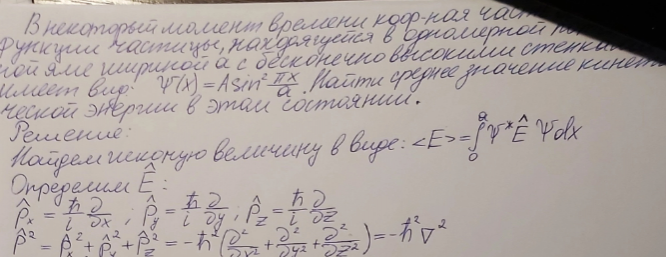 В некоторый момент времени коор-ная част
функции частицы, находящуется в одномерной
ной яме шириной a с бесконечно высокими стенка
имеет вид: Ψ(x) = A sin² πx/a. Найти среднее значение кинет
ческой энергии в этом состоянии.
Решение:
Найдем искомую величину в виде: <E> = ∫₀ᵃ Ψ* Ê Ψ dx
Определим Ê:
p̂ₓ = ħ/i ∂/∂x ; p̂_y = ħ/i ∂/∂y ; p̂_z = ħ/i ∂/∂z
p̂² = p̂ₓ² + p̂_y² + p̂_z² = -ħ² (∂²/∂x² + ∂²/∂y² + ∂²/∂z²) = -ħ² ∇²